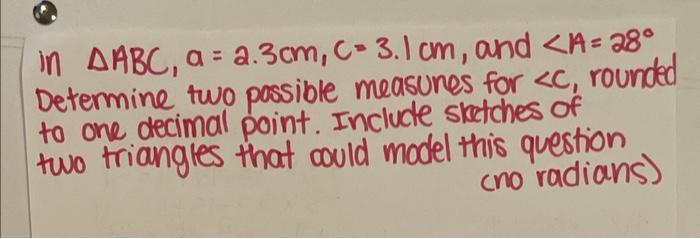 in △ABC, a = 2.3cm, C = 3.1cm, and <A = 28°
Determine two possible measures for <C, rounded
to one decimal point. Include sketches of
two triangles that could model this question
(no radians)